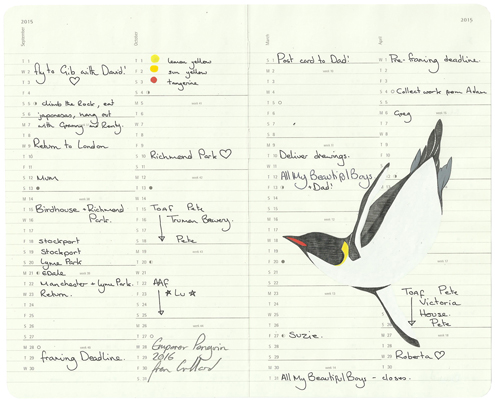 2015
September
fly to Gib with David!
climb the Rock, eat
japonesas, hang out
with Granny and Renly.
Return to London
Mum
Birdhouse + Richmond
Park.
Stockport
Stockport
Lyme Park
Edale
Manchester + Lyme Park.
Return.
framing Deadline.
October
lemon yellow
sun yellow
tangerine
Richmond Park
Toaf Pete
Truman Brewery.
Pete
AAF
Lu
Emperor Penguin
2016
2015
March
Post card to Dad!
Deliver drawings.
All My Beautiful Boys
+ Dad!
Suzie.
All My Beautiful Boys - closes.
April
Pre-framing deadline.
Collect work from Adam
Greg
Toaf Pete
Victoria
House.
Pete
Roberta